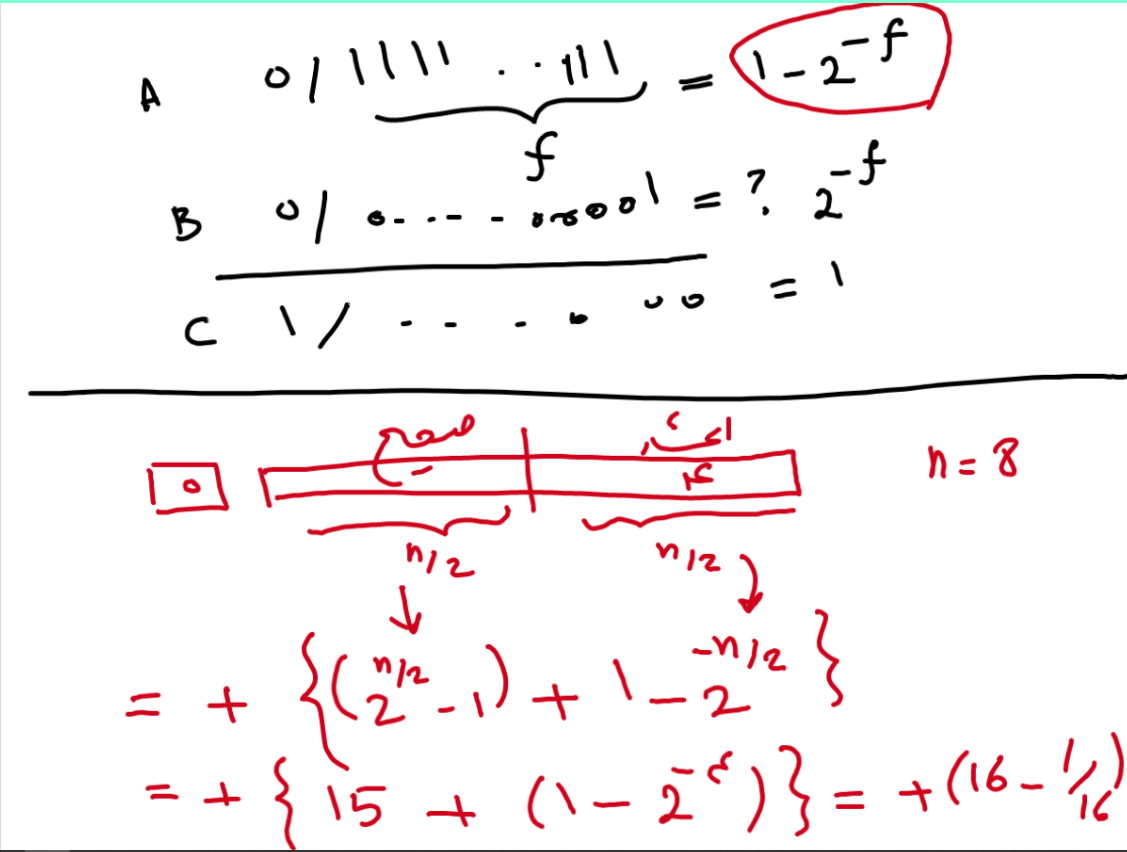 A 0/11111..111 = 1-2^-f
f
B 0/0----00001 = ? 2^-f
C 1/----000 = 1
صحیح اعشار n=8
0
n/2 n/2
= + {(2^n/2 -1) + 1-2^-n/2}
= + {15 + (1-2^-۴)} = +(16-1/16)